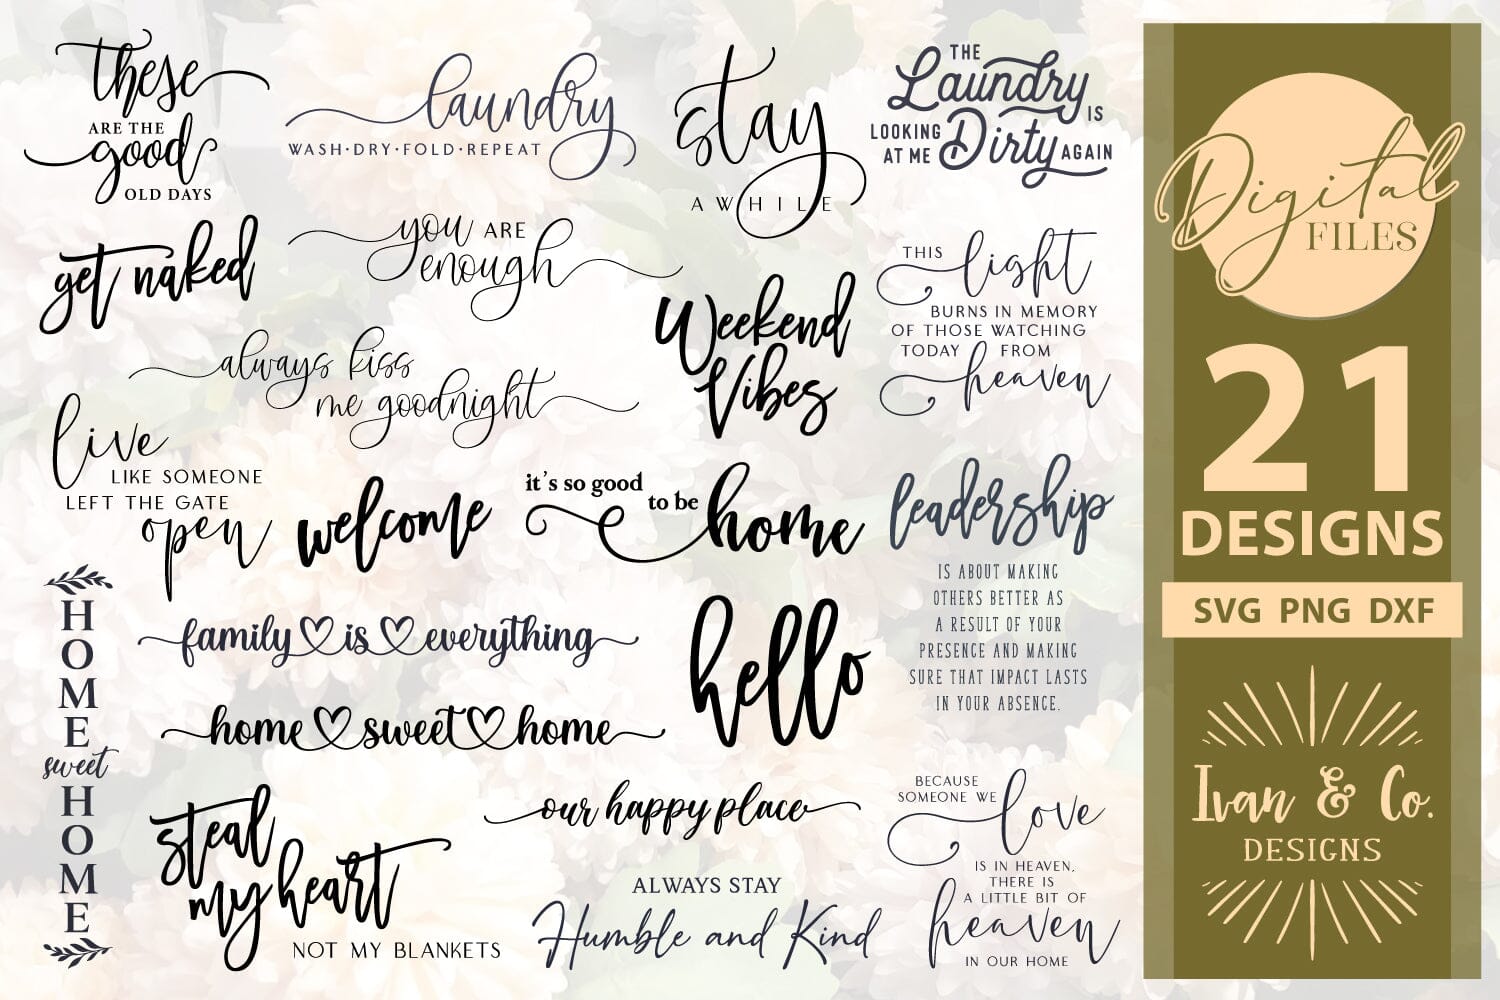 these
ARE THE
good
OLD DAYS
laundry
WASH·DRY·FOLD·REPEAT
stay
AWHILE
THE
Laundry
IS
LOOKING
AT ME
Dirty
AGAIN
get naked
you ARE
enough
Weekend
Vibes
THIS light
BURNS IN MEMORY
OF THOSE WATCHING
TODAY FROM
heaven
always kiss
me goodnight
live
LIKE SOMEONE
LEFT THE GATE
open
welcome
it's so good
to be
home
leadership
IS ABOUT MAKING
OTHERS BETTER AS
A RESULT OF YOUR
PRESENCE AND MAKING
SURE THAT IMPACT LASTS
IN YOUR ABSENCE.
HOME
sweet
HOME
family is everything
hello
home sweet home
steal
my heart
NOT MY BLANKETS
our happy place
ALWAYS STAY
Humble and Kind
BECAUSE
SOMEONE WE
love
IS IN HEAVEN,
THERE IS
A LITTLE BIT OF
heaven
IN OUR HOME
Digital
FILES
21
DESIGNS
SVG PNG DXF
Ivan & Co.
DESIGNS